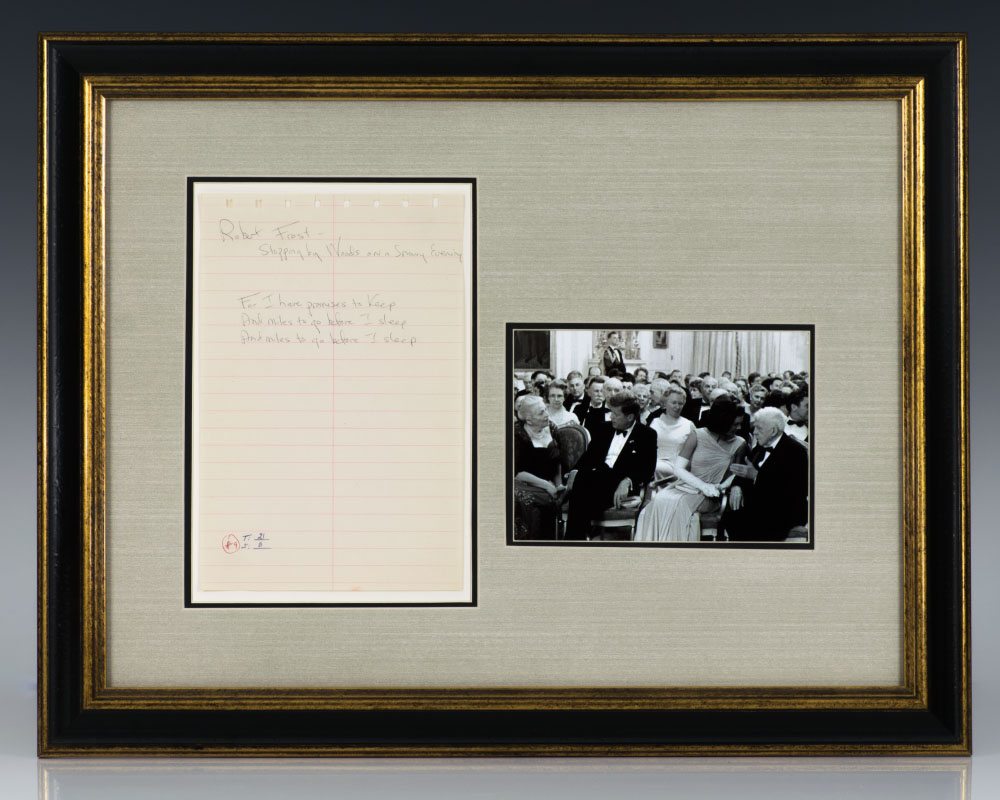 Robert Frost -
Stopping by Woods on a Snowy Evening
For I have promises to Keep
And miles to go before I sleep
And miles to go before I sleep
#9 T: 21